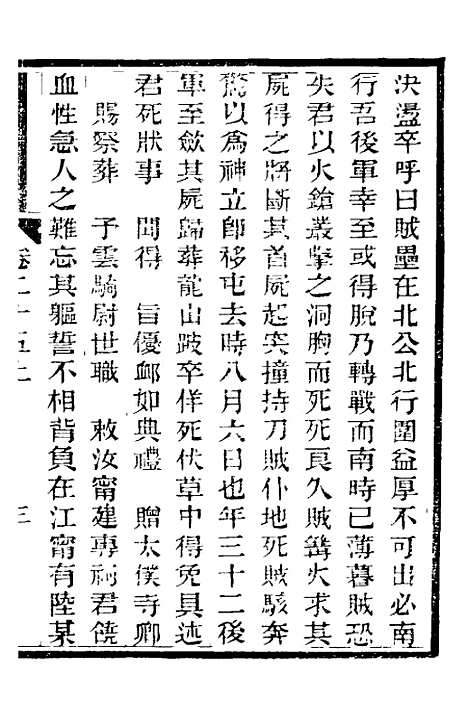 決盪卒呼曰賊壘在北公北行圍益厚不可出必南
行吾後軍幸至或得脫乃轉戰而南時已薄暮賊恐
失君以火鎗叢擊之洞胸而死死良久賊篝火求其
屍得之將斷其首屍起突撞持刀賊仆地死賊駭奔
驚以爲神立即移屯去時八月六日也年三十二後
軍至斂其屍歸葬龍山跛卒佯死伏草中得免具述
君死狀事　聞得　旨優卹如典禮　贈太僕寺卿
賜祭葬　予雲騎尉世職　敕汝甯建專祠君饒
血性急人之難忘其軀誓不相背負在江甯有陸某
卷二十五上　三